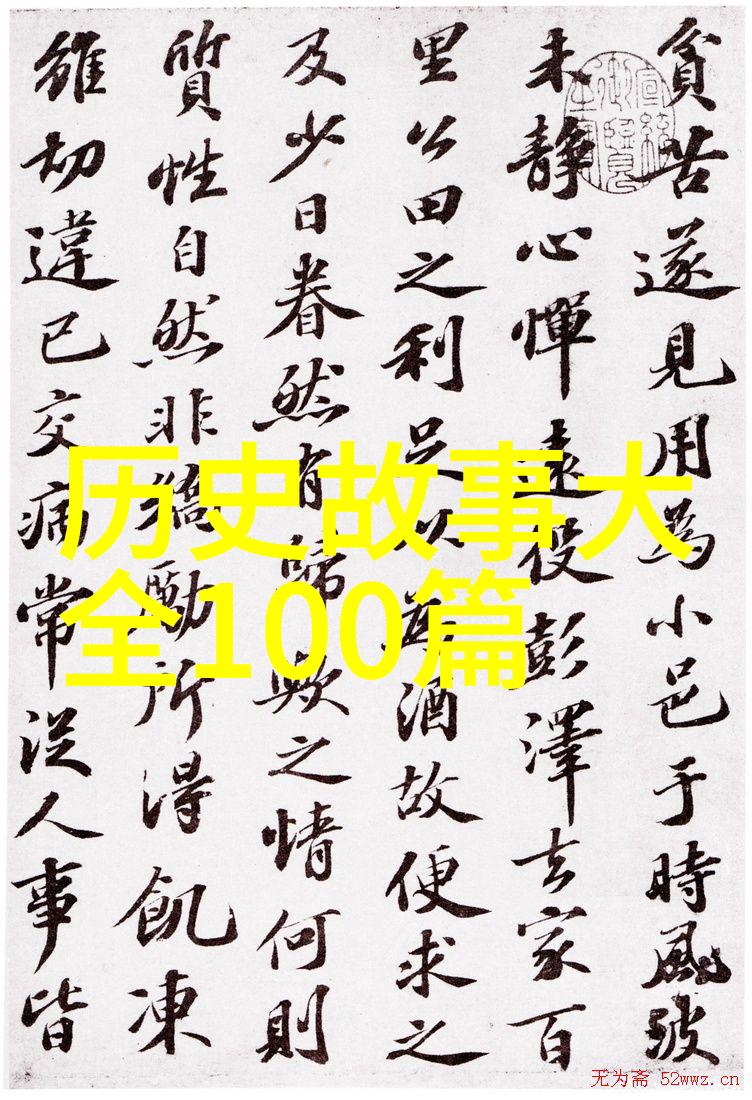 貧苦遂見用為小邑于時風波
未靜心憚遠役彭澤去家百
里公田之利足以為酒故便求之
及少日眷然有歸歟之情何則
質性自然非矯勵所得飢凍
雖切違己交病常從人事皆
宣統
御覽
之寶
历史故事大
全100篇
无为斋 52wwz.cn